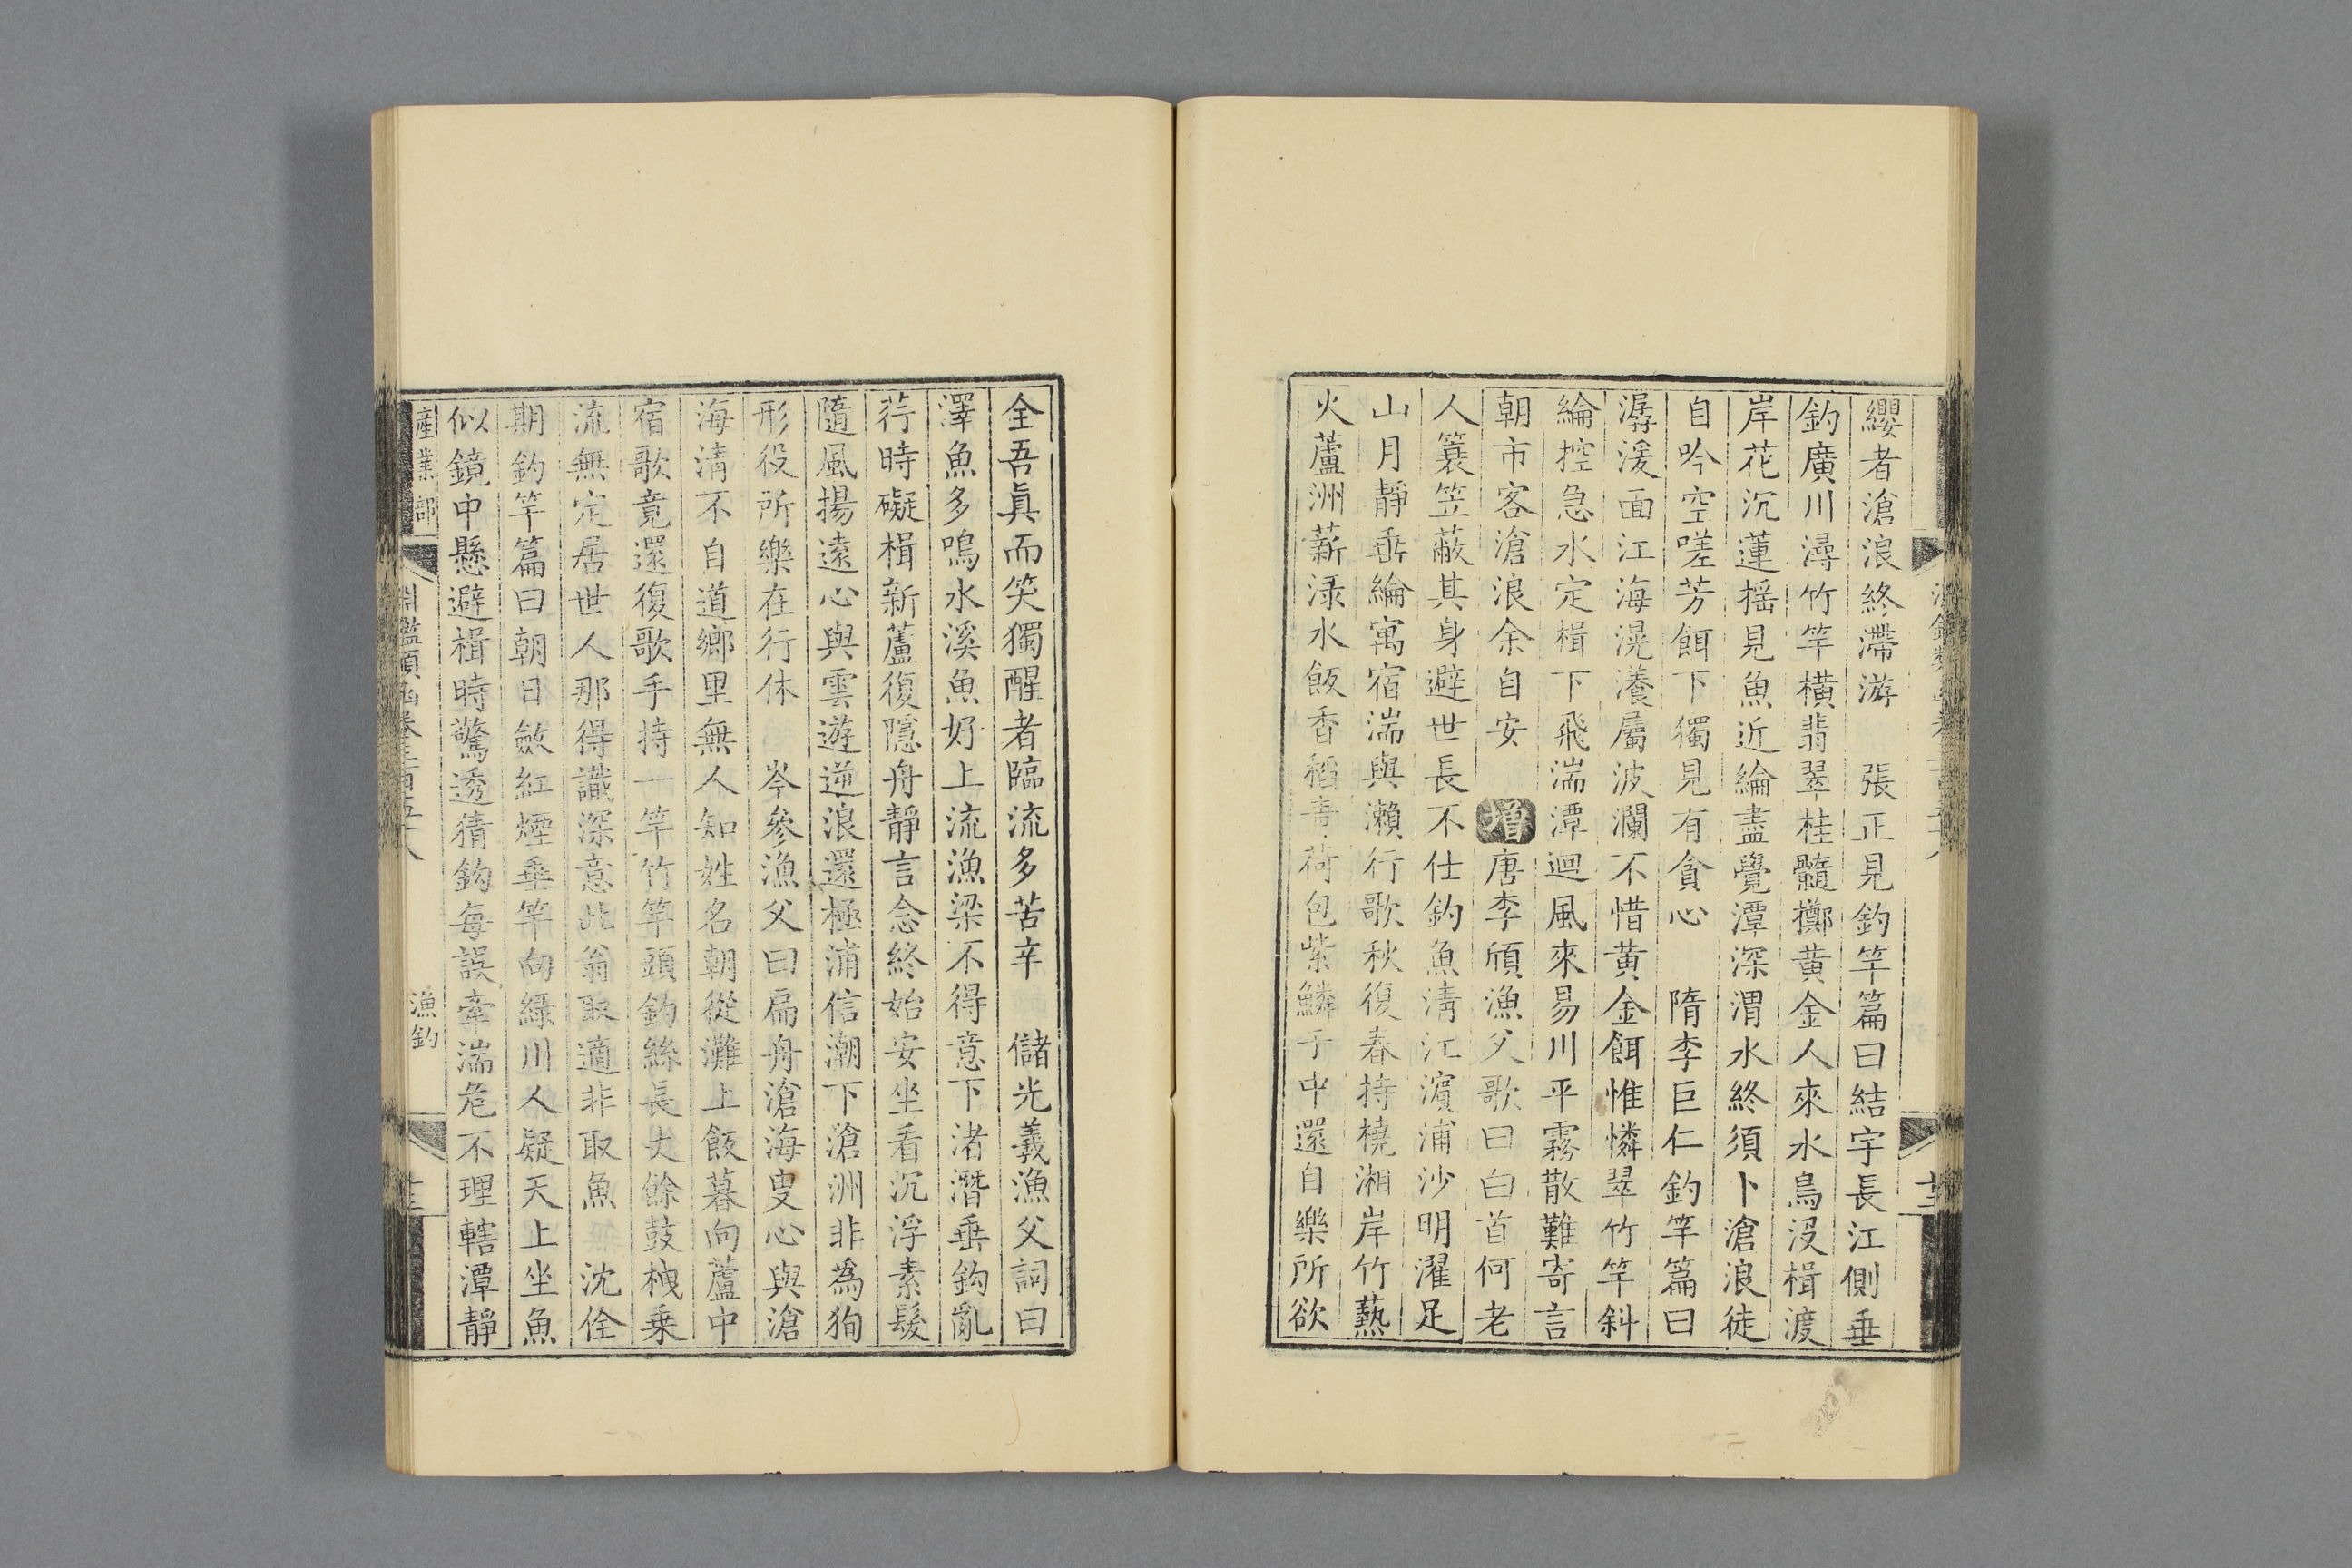 纓者滄浪終滯游　張正見釣竿篇曰結宇長江側垂
釣廣川潯竹竿橫翡翠桂髓擲黃金人來水鳥沒楫渡
岸花沉蓮搖見魚近綸盡覺潭深渭水終須卜滄浪徒
自吟空嗟芳餌下獨見有貪心　隋李巨仁釣竿篇曰
潺湲面江海滉瀁屬波瀾不惜黃金餌惟憐翠竹竿斜
綸控急水定楫下飛湍潭迴風來易川平霧散難寄言
朝市客滄浪余自安　增唐李頎漁父歌曰白首何老
人簑笠蔽其身避世長不仕釣魚清江濱浦沙明濯足
山月靜垂綸寓宿湍與瀨行歌秋復春持橈湘岸竹爇
火蘆洲薪渌水飯香稻青荷包紫鱗于中還自樂所欲
全吾眞而笑獨醒者臨流多苦辛　儲光羲漁父詞曰
澤魚多鳴水溪魚好上流漁梁不得意下渚潛垂鈎亂
荇時礙楫新蘆復隱舟靜言念終始安坐看沉浮素髮
隨風揚遠心與雲遊逆浪還極浦信潮下滄洲非為狥
形役所樂在行休　岑參漁父曰扁舟滄海叟心與滄
海清不自道鄉里無人知姓名朝從灘上飯暮向蘆中
宿歌竟還復歌手持一竿竹竿頭釣絲長丈餘鼓枻乗
流無定居世人那得識深意此翁取適非取魚　沈佺
期釣竿篇曰朝日斂紅煙垂竿向綠川人疑天上坐魚
似鏡中懸避楫時驚透猜鈎每誤牽湍危不理轄潭靜
產業部　淵鑑類函卷三百五十八　漁釣